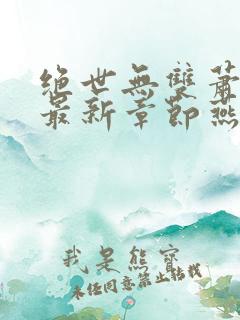 絕世無雙蕭
最新章節燕
我是熊寶
未经同意禁止转载